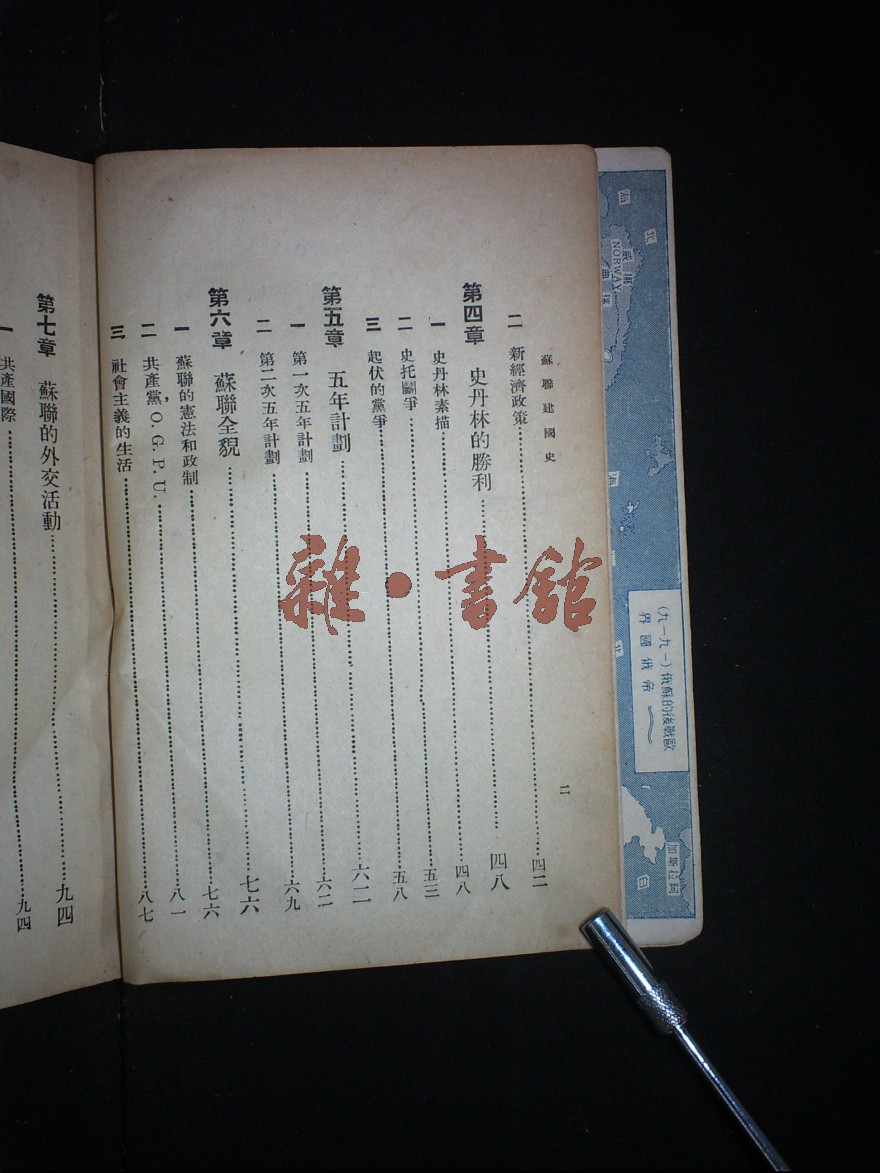 蘇聯建國史
二 新經濟政策 四二
第四章 史丹林的勝利 四八
一 史丹林素描 四八
二 史托鬭爭 五三
三 起伏的黨爭 五八
第五章 五年計劃 六二
一 第一次五年計劃 六二
二 第二次五年計劃 六九
第六章 蘇聯全貌 七六
一 蘇聯的憲法和政制 七六
二 共產黨,O.G.P.U. 八一
三 社會主義的生活 八七
二
第七章 蘇聯的外交活動 九四
一 共產國際 九四
雜·書館
NORWAY
挪威
歐戰後的蘇俄(一九一九)
帝俄國界
阿拉斯加